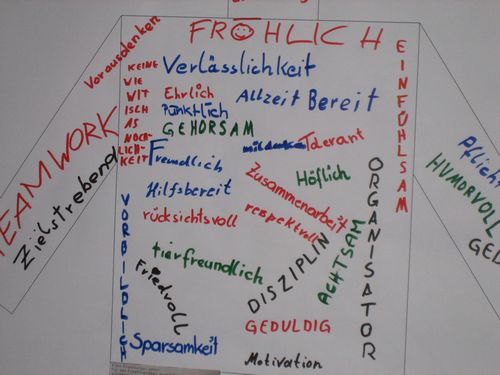 FRÖHLICH
Vorausdenken
TEAMWORK
Zielstrebend
KEINE
WIE
WIT
ISCH
AS
NOCH
LICH-
KEIT
Verlässlichkeit
Ehrlich
Allzeit Bereit
Pünktlich
GEHORSAM
mitdenken
Tolerant
Freundlich
Zusammenarbeit
Höflich
Hilfsbereit
rücksichtsvoll
respektvoll
EINFÜHLSAM
ORGANISATOR
VORBILDLICH
tierfreundlich
Friedvoll
DISZIPLIN
ACHTSAM
GEDULDIG
Sparsamkeit
Motivation
HUMORVOLL